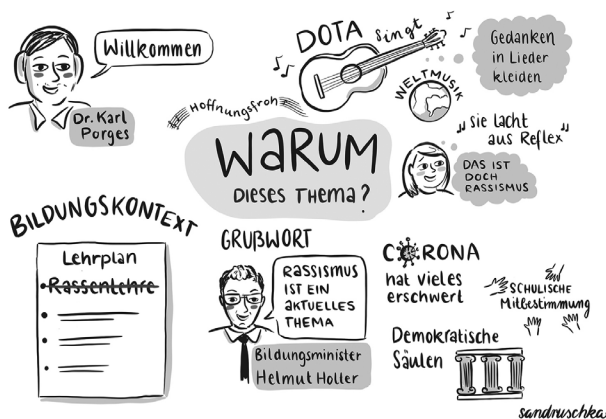 Willkommen
Dr. Karl
Porges
DOTA singt
Gedanken
in Lieder
kleiden
WELTMUSIK
„Sie lacht
aus Reflex"
DAS IST
DOCH
RASSISMUS
Hoffnungsfroh
WARUM
DIESES THEMA?
BILDUNGSKONTEXT
Lehrplan
Rassenlehre
GRUẞWORT
RASSISMUS
IST EIN
AKTUELLES
THEMA
Bildungsminister
Helmut Holler
CORONA
hat vieles
erschwert
SCHULISCHE
Mitbestimmung
Demokratische
Säulen
sandruschka